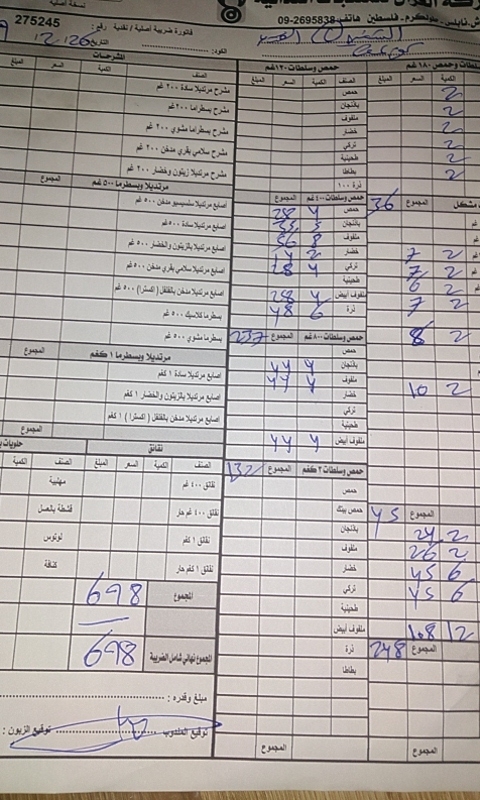 نسخة أصلية
ش.نابلس - طولكرم - فلسطين هاتف 2695838-09
فاتورة ضريبية أصلية / نقدية رقم : 275245
التاريخ
الكود :
المشرحات
الصنف الكمية السعر المبلغ
مشرح مرتديلا سادة ٢٠٠ غم
مشرح بسطراما ٢٠٠غم
مشرح بسطراما مشوي ٢٠٠ غم
مشرح سلامي بقري مدخن ٢٠٠ غم
مشرح مرتديلا زيتون وخضار ٢٠٠ غم
مرتديلا وبسطرما ٥٠٠ غم المجموع
اصابع مرتديلا سلسيميو مدخن ٥٠٠ غم
اصابع مرتديلا سادة ٥٠٠غم
اصابع مرتديلا بالزيتون والخضار ٥٠٠ غم
اصابع مرتديلا سلامي بقري مدخن ٥٠٠ غم
اصابع مرتديلا مدخن بالفلفل ( اكسترا ) ٥٠٠ غم
بسطرما كلاسيك ٥٠٠ غم
بسطرما مشوي ٥٠٠ غم
مرتديلا وبسطرما ١ كغم المجموع
اصابع مرتديلا سادة ١ كغم
اصابع مرتديلا بالزيتون والخضار ١ كغم
اصابع مرتديلا مدخن بالفلفل ( اكسترا ) ١ كغم
المجموع
نقانق
الصنف الكمية السعر المبلغ
نقانق ٤٠٠ غم
نقانق ٤٠٠ غم حار
نقانق ١ كغم
نقانق ١ كغم حار
حلويات
الصنف الكمية
مهلبية
قشطة بالعسل
لوتوس
كنافة
المجموع 698
المجموع نهائي شامل الضريبة 698
مبلغ وقدره :
توقيع المندوب
توقيع الزبون :
حمص وسلطات ١٢٠غم
الصنف الكمية السعر المبلغ
حمص
باذنجان
ملفوف
خضار
تركي
طحينية
بطاطا
ذرة ١٠٠
حمص وسلطات ٤٠٠ غم المجموع
حمص 4 28
باذنجان 5 35
ملفوف 8 56
خضار 2 14
تركي 4 28
طحينية
ملفوف ابيض 4 28
ذرة 6 48
حمص وسلطات ٨٠٠ غم المجموع 237
حمص
باذنجان 4 44
ملفوف 4 44
خضار
تركي
طحينية
ملفوف ابيض 4 44
حمص وسلطات ٢ كغم المجموع 132
حمص
حمص بيتك
باذنجان
ملفوف
خضار
تركي
طحينية
ملفوف أبيض
ذرة
بطاطا
المجموع
سلطات وحمص ١٨٠ غم
الكمية السعر المبلغ
2
2
2
2
2
2
2
مشكل المجموع 36
2 7
2 7
2 6
2 7
2 8
2 10
المجموع 45
2 24
2 26
6 45
6 45
12 108
المجموع 248
المجموع